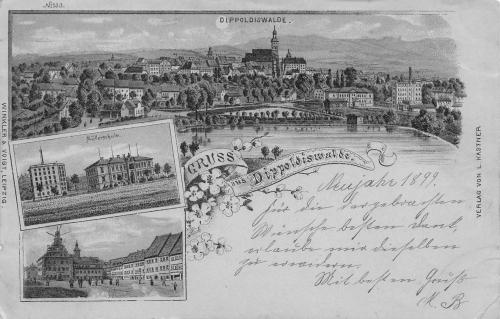 DIPPOLDISWALDE.
Müllerschule.
GRUSS
aus Dippoldiswalde.
WINKLER & VOIGT, LEIPZIG.
VERLAG VON L. KÄSTNER
Neujahr 1899.
Für die dargebrachten
Wünsche besten Dank,
erlaube mir dieselben
zu erwidern.
Mit besten Gruß